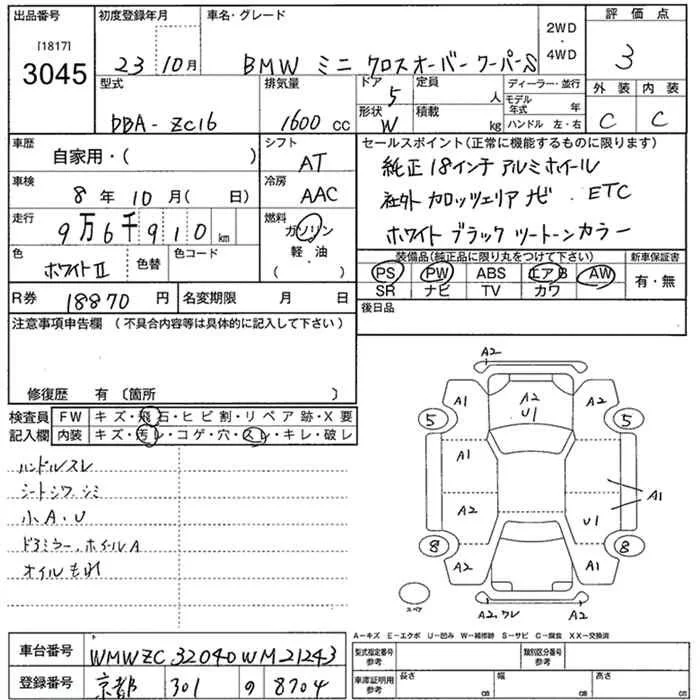 出品番号 初度登録年月 車名・グレード 2WD・4WD 評価点
[1817]
3045 23 10月 BMW ミニ クロスオーバー クーパーS 3
型式 排気量 ドア 5 定員 人 ディーラー・並行 外装 内装
DBA-ZC16 1600 cc 形状 W 積載 kg モデル年式 年 ハンドル 左・右 C C
車歴 自家用・( ) シフト AT セールスポイント(正常に機能するものに限ります)
車検 8年 10月( 日) 冷房 AAC 純正 18インチ アルミホイール
社外 カロッツェリア ナビ . ETC
走行 9万6千910km 燃料 ガソリン 軽油 ( ) ホワイト ブラック ツートーンカラー
色 ホワイトⅡ 色替 色コード 装備品(純正品に限り丸をつけて下さい) 新車保証書
PS PW ABS エアB AW 有・無
R券 18870円 名変期限 月 日 SR ナビ TV カワ
注意事項申告欄(不具合内容等は具体的に記入して下さい) 後日品
修復歴 有 〔箇所 〕
検査員 FW キズ・飛石・ヒビ割・リペア跡・X要
記入欄 内装 キズ・汚レ・コゲ・穴・スレ・キレ・破レ
ハンドルスレ
シートシワ.シミ
小A.U
ドアミラー.ホイールA
オイルもれ
A2
A1 A2 U1 A2
5 5
A1 A1
A2 U1
8 8
A2 A1
A2.ワレ A2
A-キズ E-エクボ U-凹み W-補修跡 S-サビ C-腐食 XX-交換済
車台番号 WMWZC32040WM21243 型式指定番号 参考 類別区分番号 参考
登録番号 京都 301 の 8704 車庫証明用 参考 長さ cm 幅 cm 高さ cm